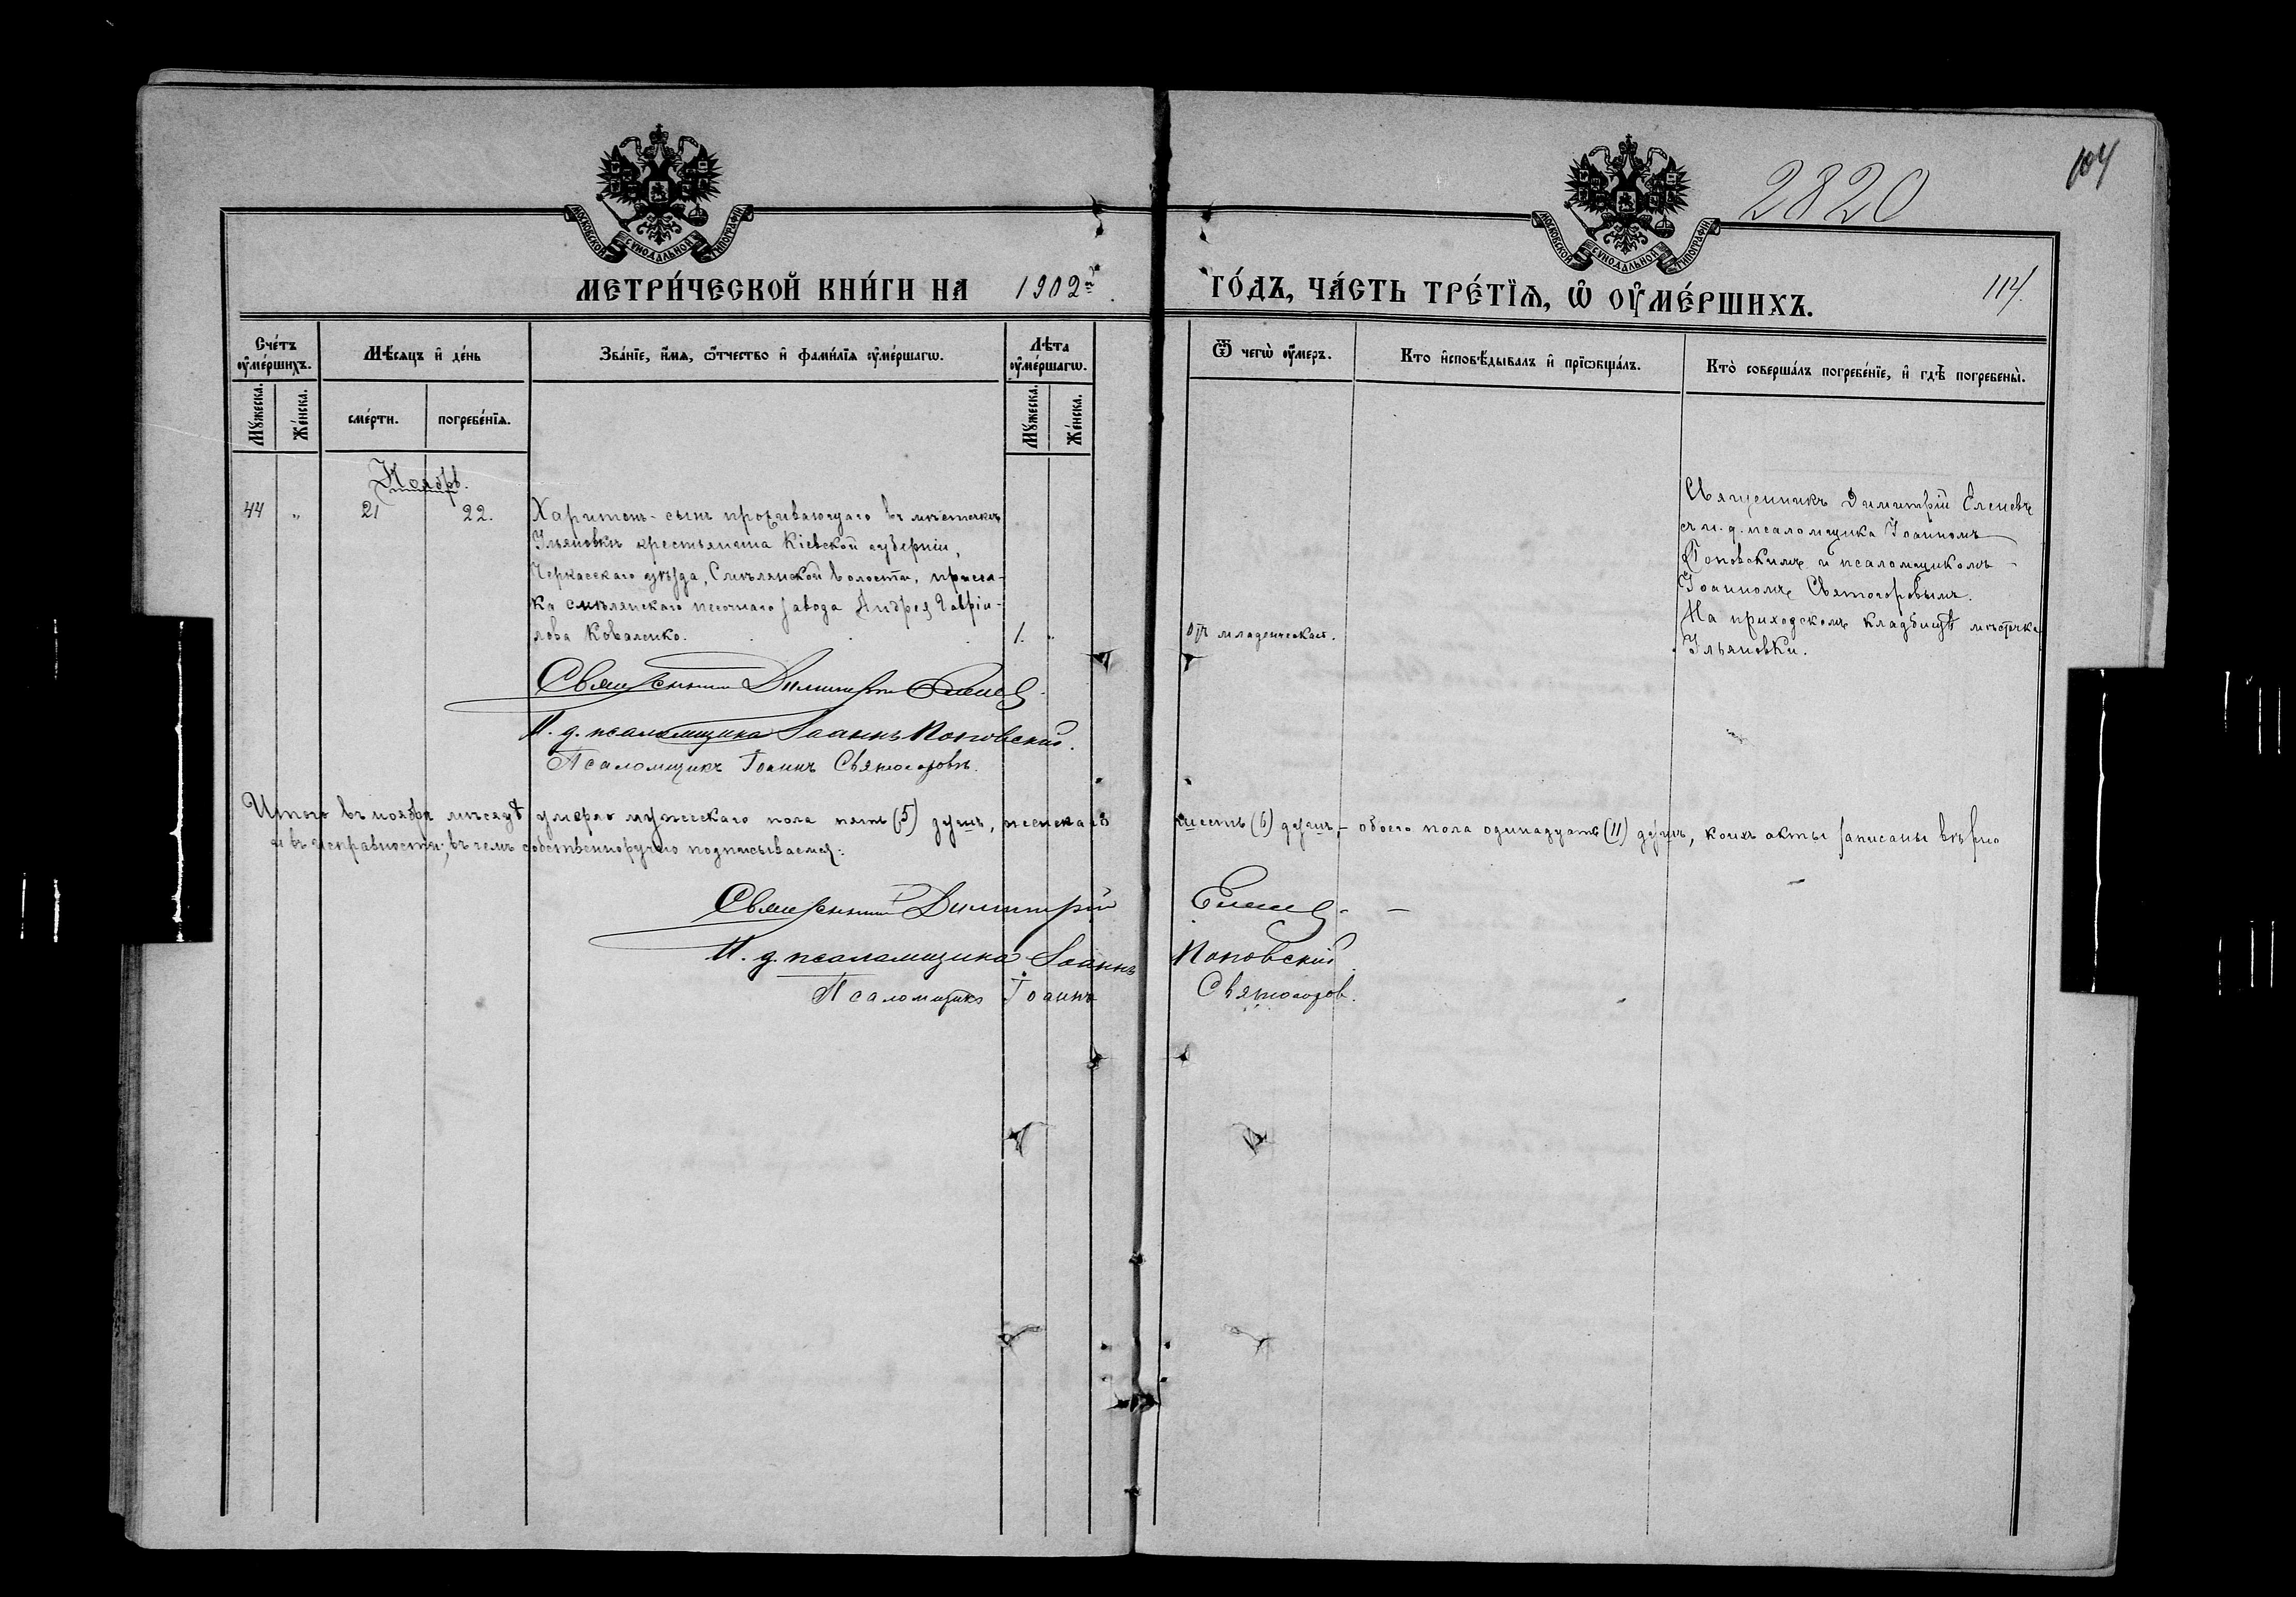 2820
104
МОСКОВСКОЙ СѴНОДАЛЬНОЙ ТИПОГРАФІИ
МОСКОВСКОЙ СѴНОДАЛЬНОЙ ТИПОГРАФІИ
МЕТРИ́ЧЕСКОЙ КНИ́ГИ НА 1902й
ГО́ДЪ, ЧА́СТЬ ТРЕ́ТЇѦ, Ѡ҆ ОУ҆МЕ́РШИХЪ.
114.
Сче́тъ оу҆ме́ршихъ.
Мѣ́сяцъ и҆ де́нь
Зва́нїе, и҆́мѧ, ѻ҆́тчество и҆ фами́лїѧ оу҆ме́ршагѡ.
Лѣ́та оу҆ме́ршагѡ.
Ѿ чегѡ̀ оу҆́меръ.
Кто и҆сповѣ́дывалъ и҆ прїѡбща́лъ.
Кто̀ соверша́лъ погребе́нїе, и҆ гдѣ̀ погребены̀.
Мꙋ́жеска.
Же́нска.
сме́рти.
погребе́нїѧ.
Мꙋ́жеска.
Же́нска.
Ноябрь.
44 " 21 22.
Харитонъ - сынъ проживающаго въ мѣстечкѣ
Ульяновкѣ крестьянина Кіевской губерніи,
Черкасскаго уѣзда, Смѣлянской волости, приселка
смѣлянскаго песочнаго завода Андрея Гавріилова
Коваленко. 1. "
Отъ младенческой.
Священникъ Димитрій Еленевъ
съ и. д. псаломщика Іоанномъ
Поповскимъ и псаломщикомъ
Іоанномъ Святогоровымъ.
На приходскомъ кладбищѣ мѣстечка
Ульяновки.
Священникъ Димитрій Еленев
И. д. псаломщика Іоаннъ Поповскій.
Псаломщикъ Іоаннъ Святогоровъ.
Итого въ ноябрѣ мѣсяцѣ умерло мужескаго пола пять (5) душъ, женскаго шесть (6) душъ, - обоего пола одинадцать (11) душъ, коихъ акты записаны вѣрно
и въ исправности; въ чемъ собственноручно подписываемся:
Священникъ Димитрій Еленев
И. д. псаломщика Іоаннъ Поповскій.
Псаломщикъ Іоаннъ Святогоров.